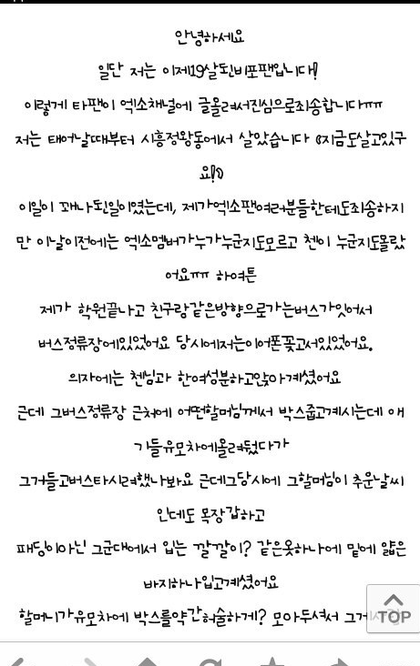 안녕하세요
일단 저는 이제19살된비포팬입니다!
이렇게 타팬이 엑소채널에 글올려서진심으로죄송합니다ㅠㅠ
저는 태어날때부터 시흥정왕동에서 살았습니다 (지금도살고있구
요!)
이일이 꽤나된일이였는데, 제가엑소팬여러분들한테도죄송하지
만 이날이전에는 엑소멤버가누가누군지도모르고 첸이 누군지도몰랐
어요ㅠㅠ 하여튼
제가 학원끝나고 친구랑같은방향으로가는버스가잇어서
버스정류장에있었어요 당시에저는이어폰꽂고서있었어요.
의자에는 첸님과 한여성분하고앉아계셨어요
근데 그버스정류장 근처에 어떤할머님께서 박스줍고계시는데 애
기들유모차에올려뒀다가
그거들고버스타시려했나봐요 근데그당시에 그할머님이 추운날씨
인데도 목장갑하고
패딩이아닌 그군대에서 입는 깔깔이? 같은옷하나에 밑에 얇은
바지하나입고계셨어요
할머니가유모차에 박스를약간허술하게? 모아두셔서 그게
TOP